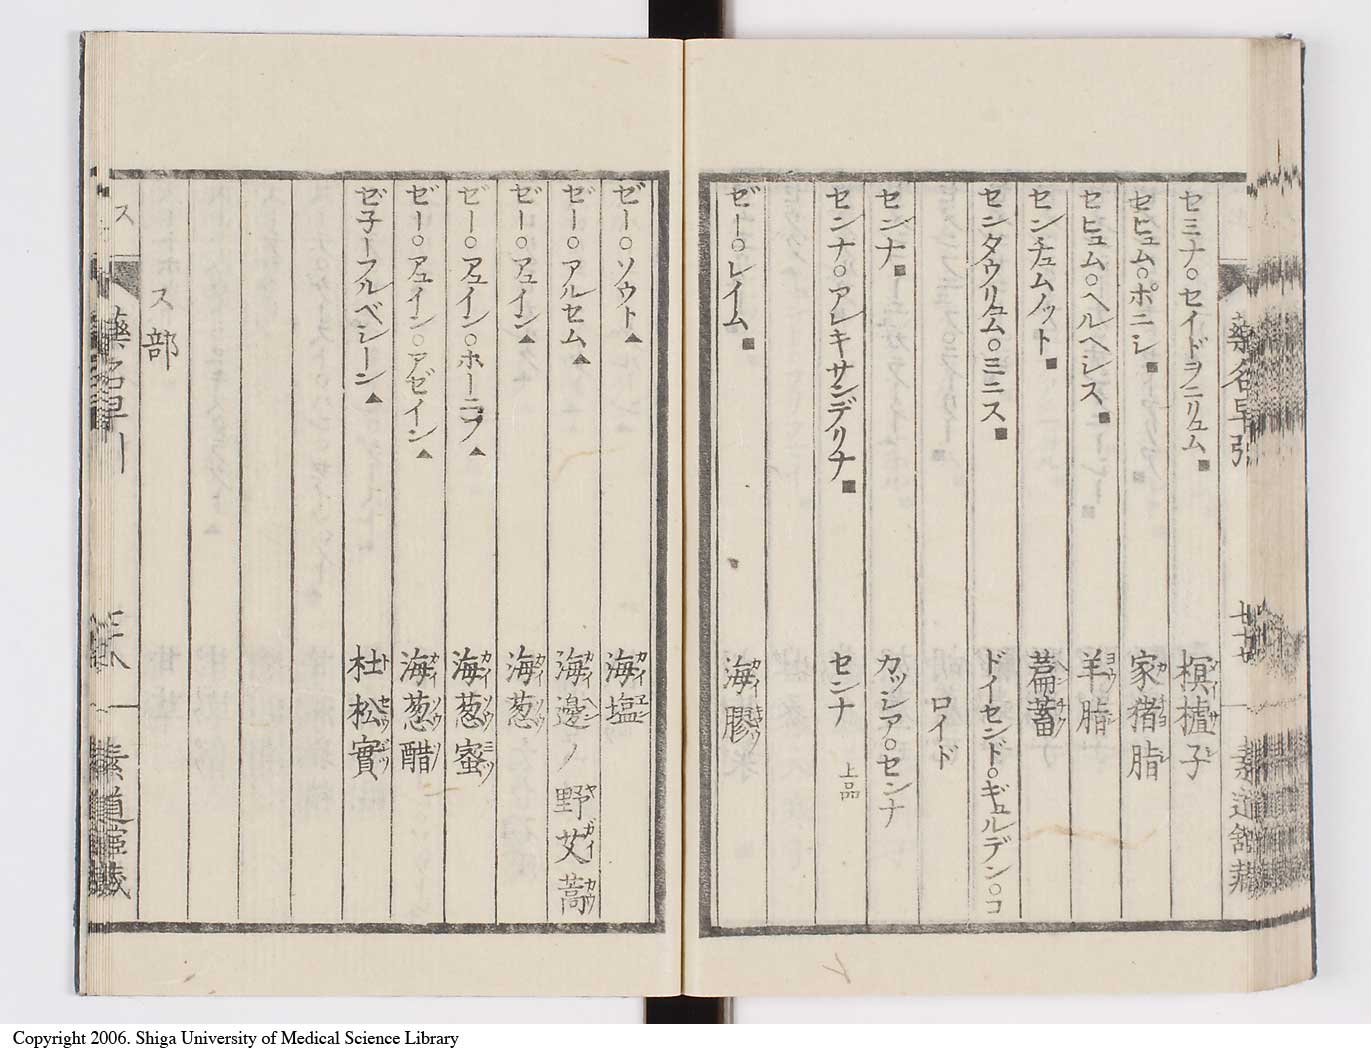 藥名早引
セミナ○セイドヲニリュム■ 榠樝子
セヒュム○ポニシ■ 家猪脂
セヒュム○ヘルヘシス■ 羊脂
センチュムノット■ 萹蓄
センタウリュム○ミニス■ ドイセンド○ギュルデン○コ
ロイド
センナ■ カッシア○センナ
センナ○アレキサンデリナ■ センナ 上品
ゼー○レイム■ 海膠
ゼー○ソウト▲ 海塩
ゼー○アルセム▲ 海邊ノ野艾蒿
ゼー○アュイン▲ 海葱
ゼー○アュイン○ホーニフ▲ 海葱蜜
ゼー○アュイン○アゼイン▲ 海葱醋
ゼ子ーフルベシーン▲ 杜松實
ス部
ス
Copyright 2006. Shiga University of Medical Science Library